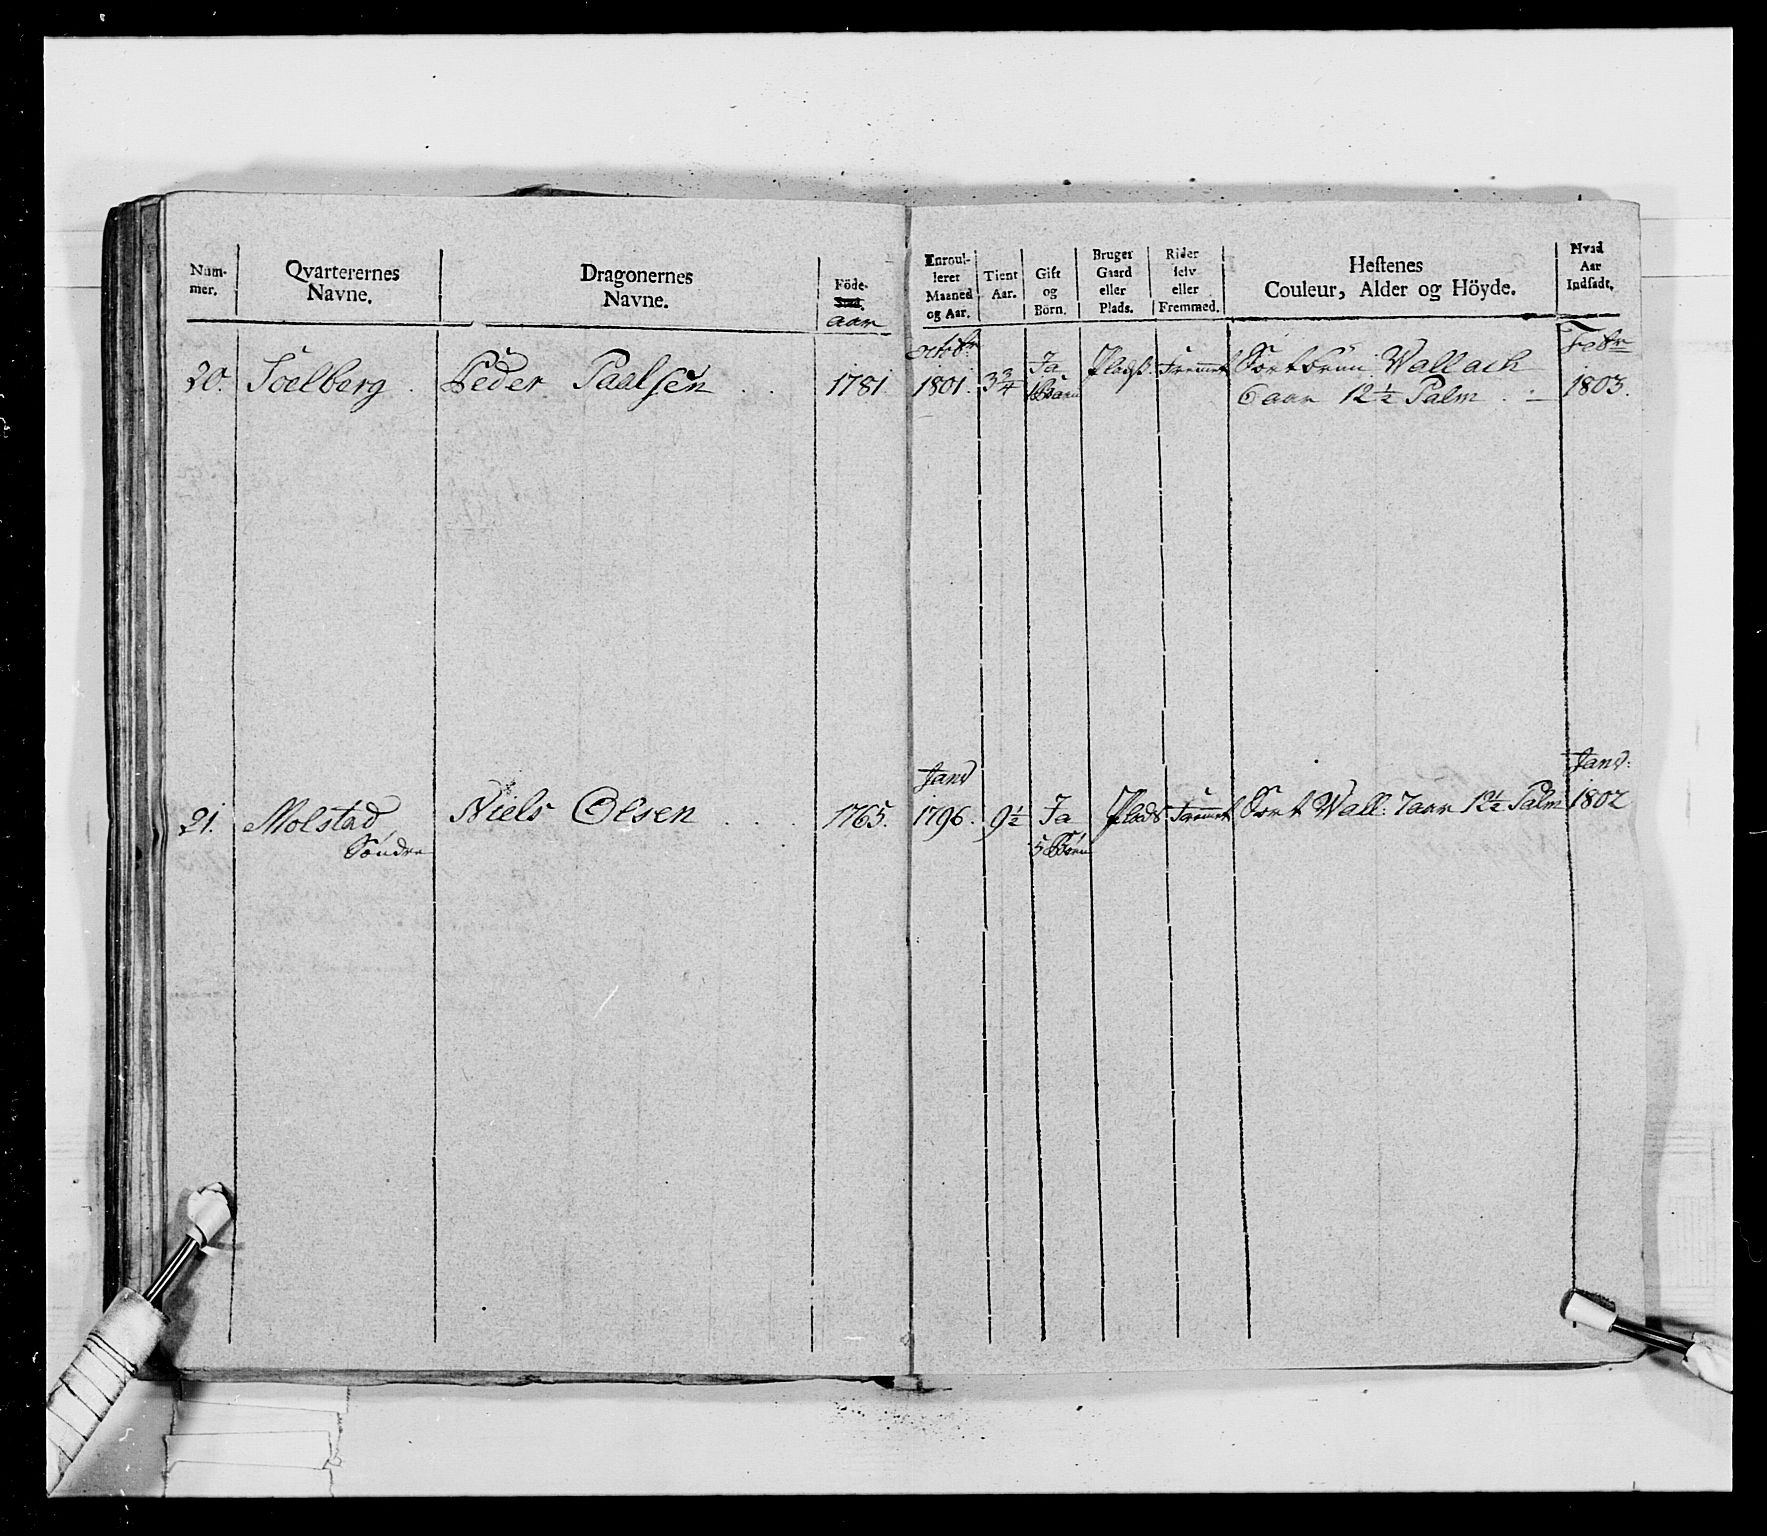 Num-
mer.
Qvarterernes
Navne.
Dragonernes
Navne.
Föde-
Sted.
aar
Enroul-
leret
Maaned
og Aar.
Tient
Aar.
Gift
og
Börn.
Bruger
Gaard
eller
Plads.
Rider
selv
eller
Fremmed.
Hestenes
Couleur, Alder og Höyde.
Hvad
Aar
Indsadt.
20. Soelberg . Peder Paalsen . 1781.
octobr
1801. 3 3/4 Ja
1 Barn
Plads. Fremmet Sortbrun Wallach
6 aar 12 1/2 Palm . :
Febr
1803.
21. Molstad
Søndre
Niels Olsen . . . 1765.
Janv
1796. 9 1/2 Ja
5 Børn
Plads Fremmet Sort Wall: 7 aar 12 1/2 Palm
Janv:
1802